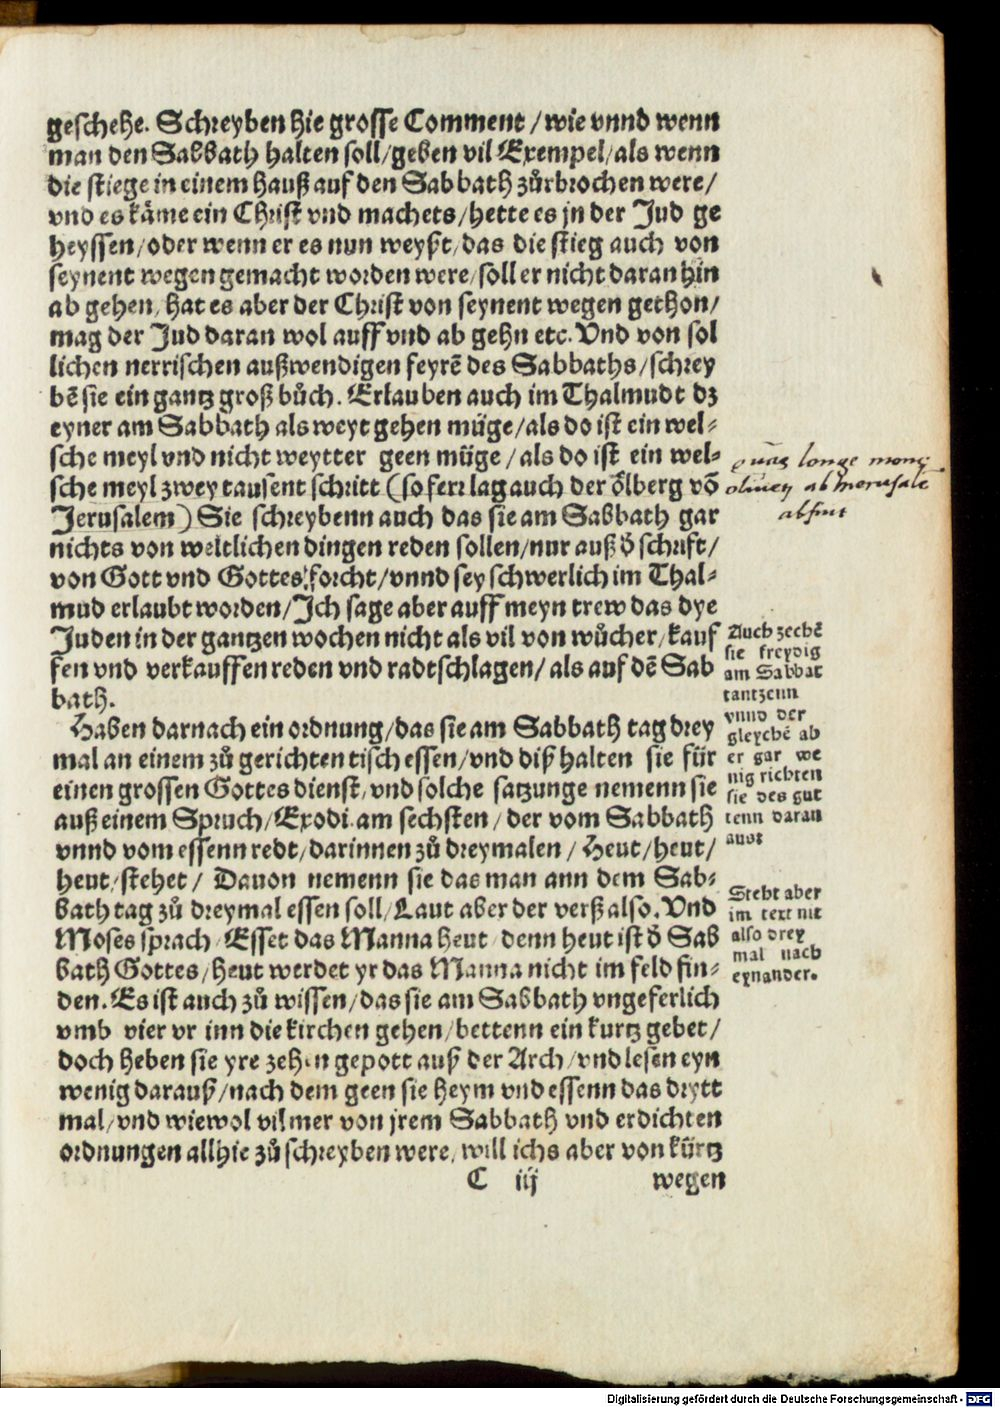 geschehe. Schreyben hie grosse Comment / wie vnnd wenn
man den Sabbath halten soll / geben vil Exempel / als wenn
die stiege in einem hauß auf den Sabbath zůrbrochen were /
vnd es kåme ein Christ vnd machets / hette es jn der Jud ge
heyssen / oder wenn er es nun weyßt / das die stieg auch von
seynent wegen gemacht worden were / soll er nicht daran hin
ab gehen / hat es aber der Christ von seynent wegen gethon /
mag der Jud daran wol auff vnd ab gehn etc. Vnd von sol
lichen nerrischen außwendigen feyrẽ des Sabbaths / schrey
bẽ sie ein gantz groß bůch. Erlauben auch im Thalmudt dz
eyner am Sabbath als weyt gehen můge / als do ist ein wel-
sche meyl vnd nicht weytter geen můge / als do ist ein wel-
sche meyl zwey tausent schritt (so ferr lag auch der ölberg võ
Jerusalem) Sie schreybenn auch das sie am Sabbath gar
nichts von weltlichen dingen reden sollen / nur auß ð schrift /
von Gott vnd Gottes forcht / vnnd sey schwerlich im Thal-
mud erlaubt worden / Jch sage aber auff meyn trew das dye
Juden in der gantzen wochen nicht als vil von wůcher / kauf
fen vnd verkauffen reden vnd radtschlagen / als auf dẽ Sab
bath.
Haben darnach ein ordnung / das sie am Sabbath tag drey
mal an einem zů gerichten tisch essen / vnd diß halten sie für
einen grossen Gottes dienst / vnd solche satzunge nemenn sie
auß einem Spruch / Exodi am sechsten / der vom Sabbath
vnnd vom essenn redt / darinnen zů dreymalen / Heut / heut /
heut / stehet / Dauon nemenn sie das man ann dem Sab-
bath tag zů dreymal essen soll / Laut aber der verß also. Vnd
Moses sprach / Esset das Manna heut / denn heut ist ð Sab
bath Gottes / heut werdet yr das Manna nicht im feld fin-
den. Es ist auch zů wissen / das sie am Sabbath vngeferlich
vmb vier vr inn die kirchen gehen / bettenn ein kurtz gebet /
doch heben sie yre zehen gepott auß der Arch / vnd lesen eyn
wenig darauß / nach dem geen sie heym vnd essenn das drytt
mal / vnd wiewol vil mer von jrem Sabbath vnd erdichten
ordnungen allhie zů schreyben were / will ichs aber von kürtz
C iij wegen
longe mons
oliuey ab
absint
Auch zechẽ
sie freydig
am Sabbat
tantzenn
vnnd der
gleychẽ ab
er gar we
nig richten
sie des gut
tenn daran
auß
Steht aber
im text nit
also drey
mal nach
eynander.
Digitalisierung gefördert durch die Deutsche Forschungsgemeinschaft - DFG